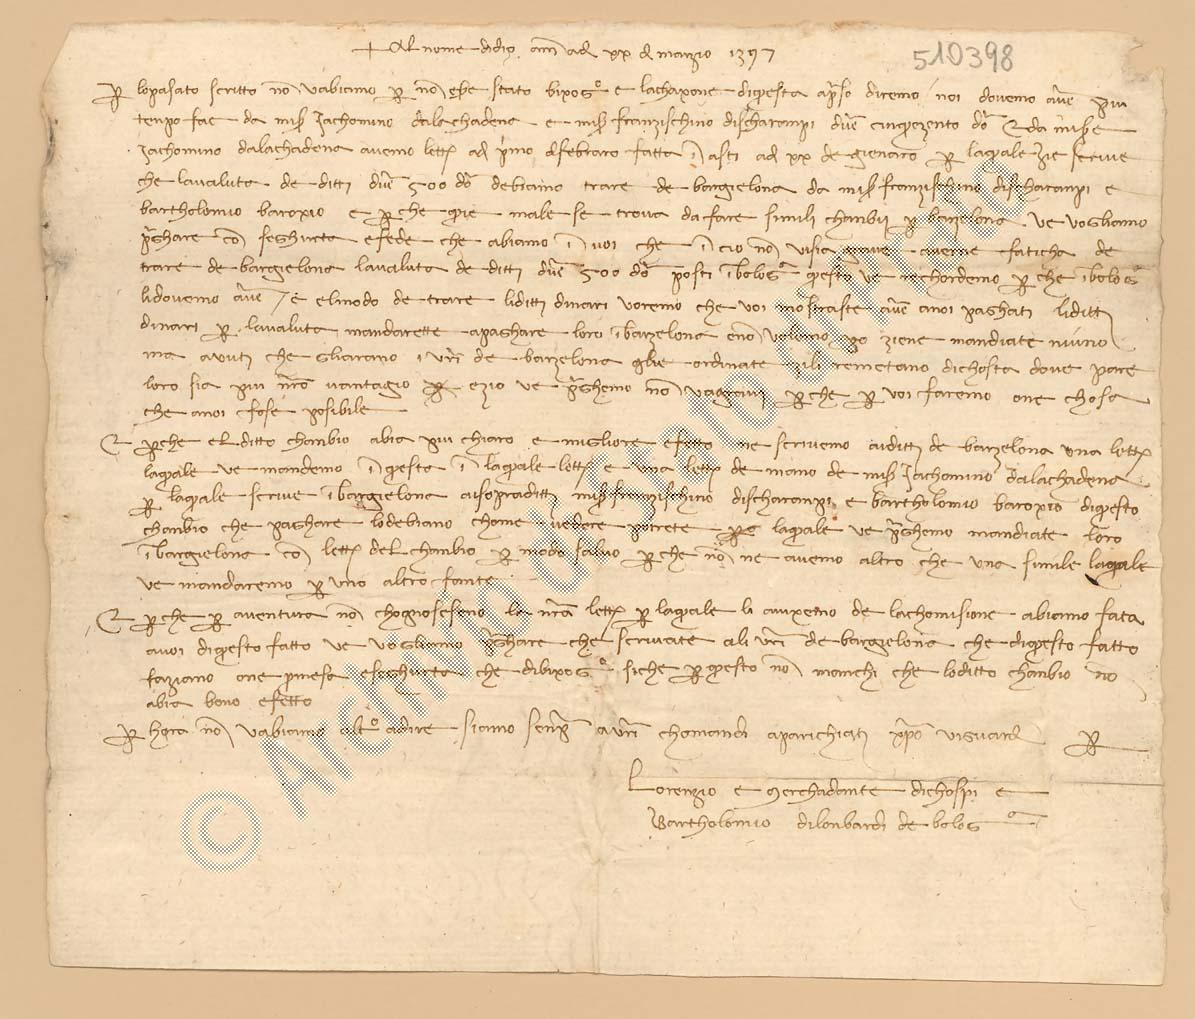 + Al nome didio amē adj xx dj marzio 1397
510398
ꝑ lo pasato scritto nō v abiamo ꝑ nō esere stato bixogº e la chaxone di questa apreso diremo noi dovemo avere piu
tempo fae da misᵣ Jachomino dalachadena e misᵣ franzischino discharampi duē cinquezento dº E da miser
Jachomino dalachadena avemo lettᵃ adj primo de febraro fatta ī asti adj xx de gienaro ꝑ la quale zie scrive
che la valuta de ditti duē 500 dº debiamo trare de bargielona da misᵣ franzischino discharampi e
bartholomio baroxio e ꝑche quie male se trova da fare simili chanbij ꝑ barzelona ve vogliamo
preghare cō seghurta e fede che abiamo ī voi che ī cio nō vi sia grave averne faticha de
trare de bargielona la valuta de ditti duē 500 dº posti ī bologª questo ve rechordemo ꝑche ī bologª
li dovemo avere E el modo de trare li ditti dinari voremo che voi mostraste avere a noi paghati li ditti
dinari ꝑ la valuta mandarette a paghare loro ī barzelona e nō volemo ziene mandiate niuno
ma avuti che gli arano i vr̄i de barzelona glie ordinate zili remetano di chosta dove pare
loro sia piu nr̄o vantagio ꝑ ezio ve preghemo nō v agravi ꝑche ꝑ voi faremo one chosa
che a noi fose posibile
E ꝑche el ditto chanbio abia piu chiaro e migliore efetto ne scrivemo a i ditti de barzelona una lettᵃ
la quale ve mandemo ī questa ī la quale lettᵃ e una lettᵃ de mano de misᵣ Jachomino dalachadena
ꝑ la quale scrive ī bargielona a i sopraditti misᵣ franzischino discharampi e bartholomio baroxio di questo
chanbio che paghare lo debiano chome vedere potrete la quale ve preghemo mandiate loro
ī bargielona cō lettᵃ del chanbio ꝑ modo salvo ꝑche nō ne avemo altro che una simile la quale
ve mandaremo ꝑ uno altro fante
E ꝑche ꝑ aventura nō chognoscseno la nr̄a lettᵃ ꝑ la quale li avixemo de la chomisione abiamo fata
a voi di questo fatto ve vogliamo preghare che scrivate a li vr̄i de bargielona che di questo fatto
faziano one promesa e seghurta che di bixogº siche ꝑ questo nō manchi che lo ditto chanbio nō
abia bono efetto
ꝑ hora nō v abiamo altº a dire siamo senpre a vr̄i chomandi aparichiati xp̄o vi guardi ꝑ
Lorenzio e merchadante dichospi e
Bartholomio dilonbardi de bologª
© Archivio di Stato di Prato